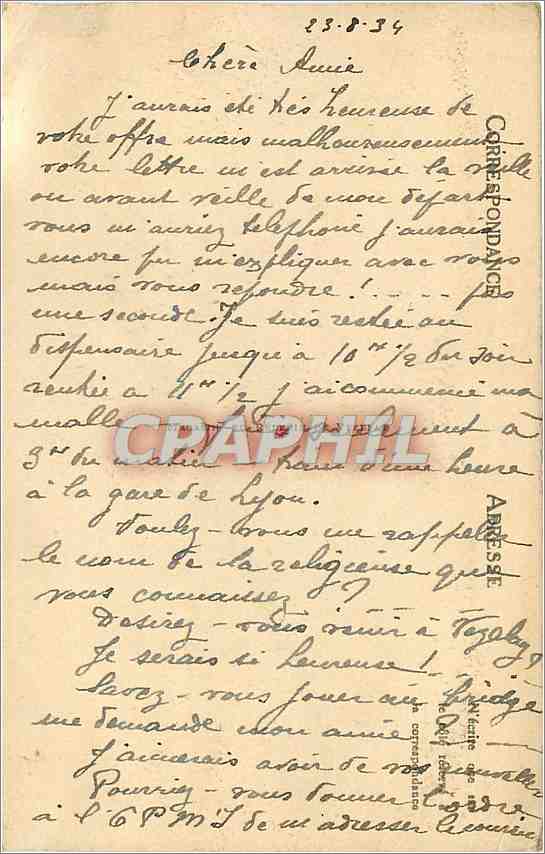 23-8-34
Chère Amie
J'aurais été très heureuse de
votre offre mais malheureusement
votre lettre m'est arrivée la veille
ou avant veille de mon départ
vous m'auriez telephoné j'aurais
encore pu m'expliquer avec vous
mais vous repondre!.... pas
une seconde. Je suis restée au
dispensaire jusqu'à 10 hr 1/2 du soir
rentrée a 11 hr 1/2 j'ai commencé ma
malle seulement à
3 hr du matin - train d'une heure
à la gare de Lyon.
Voulez-vous me rappeler
le nom de la religieuse que
vous connaissez?
Desirez-vous venir à Vezelay?
Je serais si heureuse!
Savez-vous jouer au bridge
me demande mon amie
J'aimerais avoir de vos nouvelles
Pourriez-vous donner l'ordre
à l' de m'adresser le courrier
CORRESPONDANCE
ADRESSE
N'écrire que sur
le côté réservé à
la correspondance
CPAPHIL